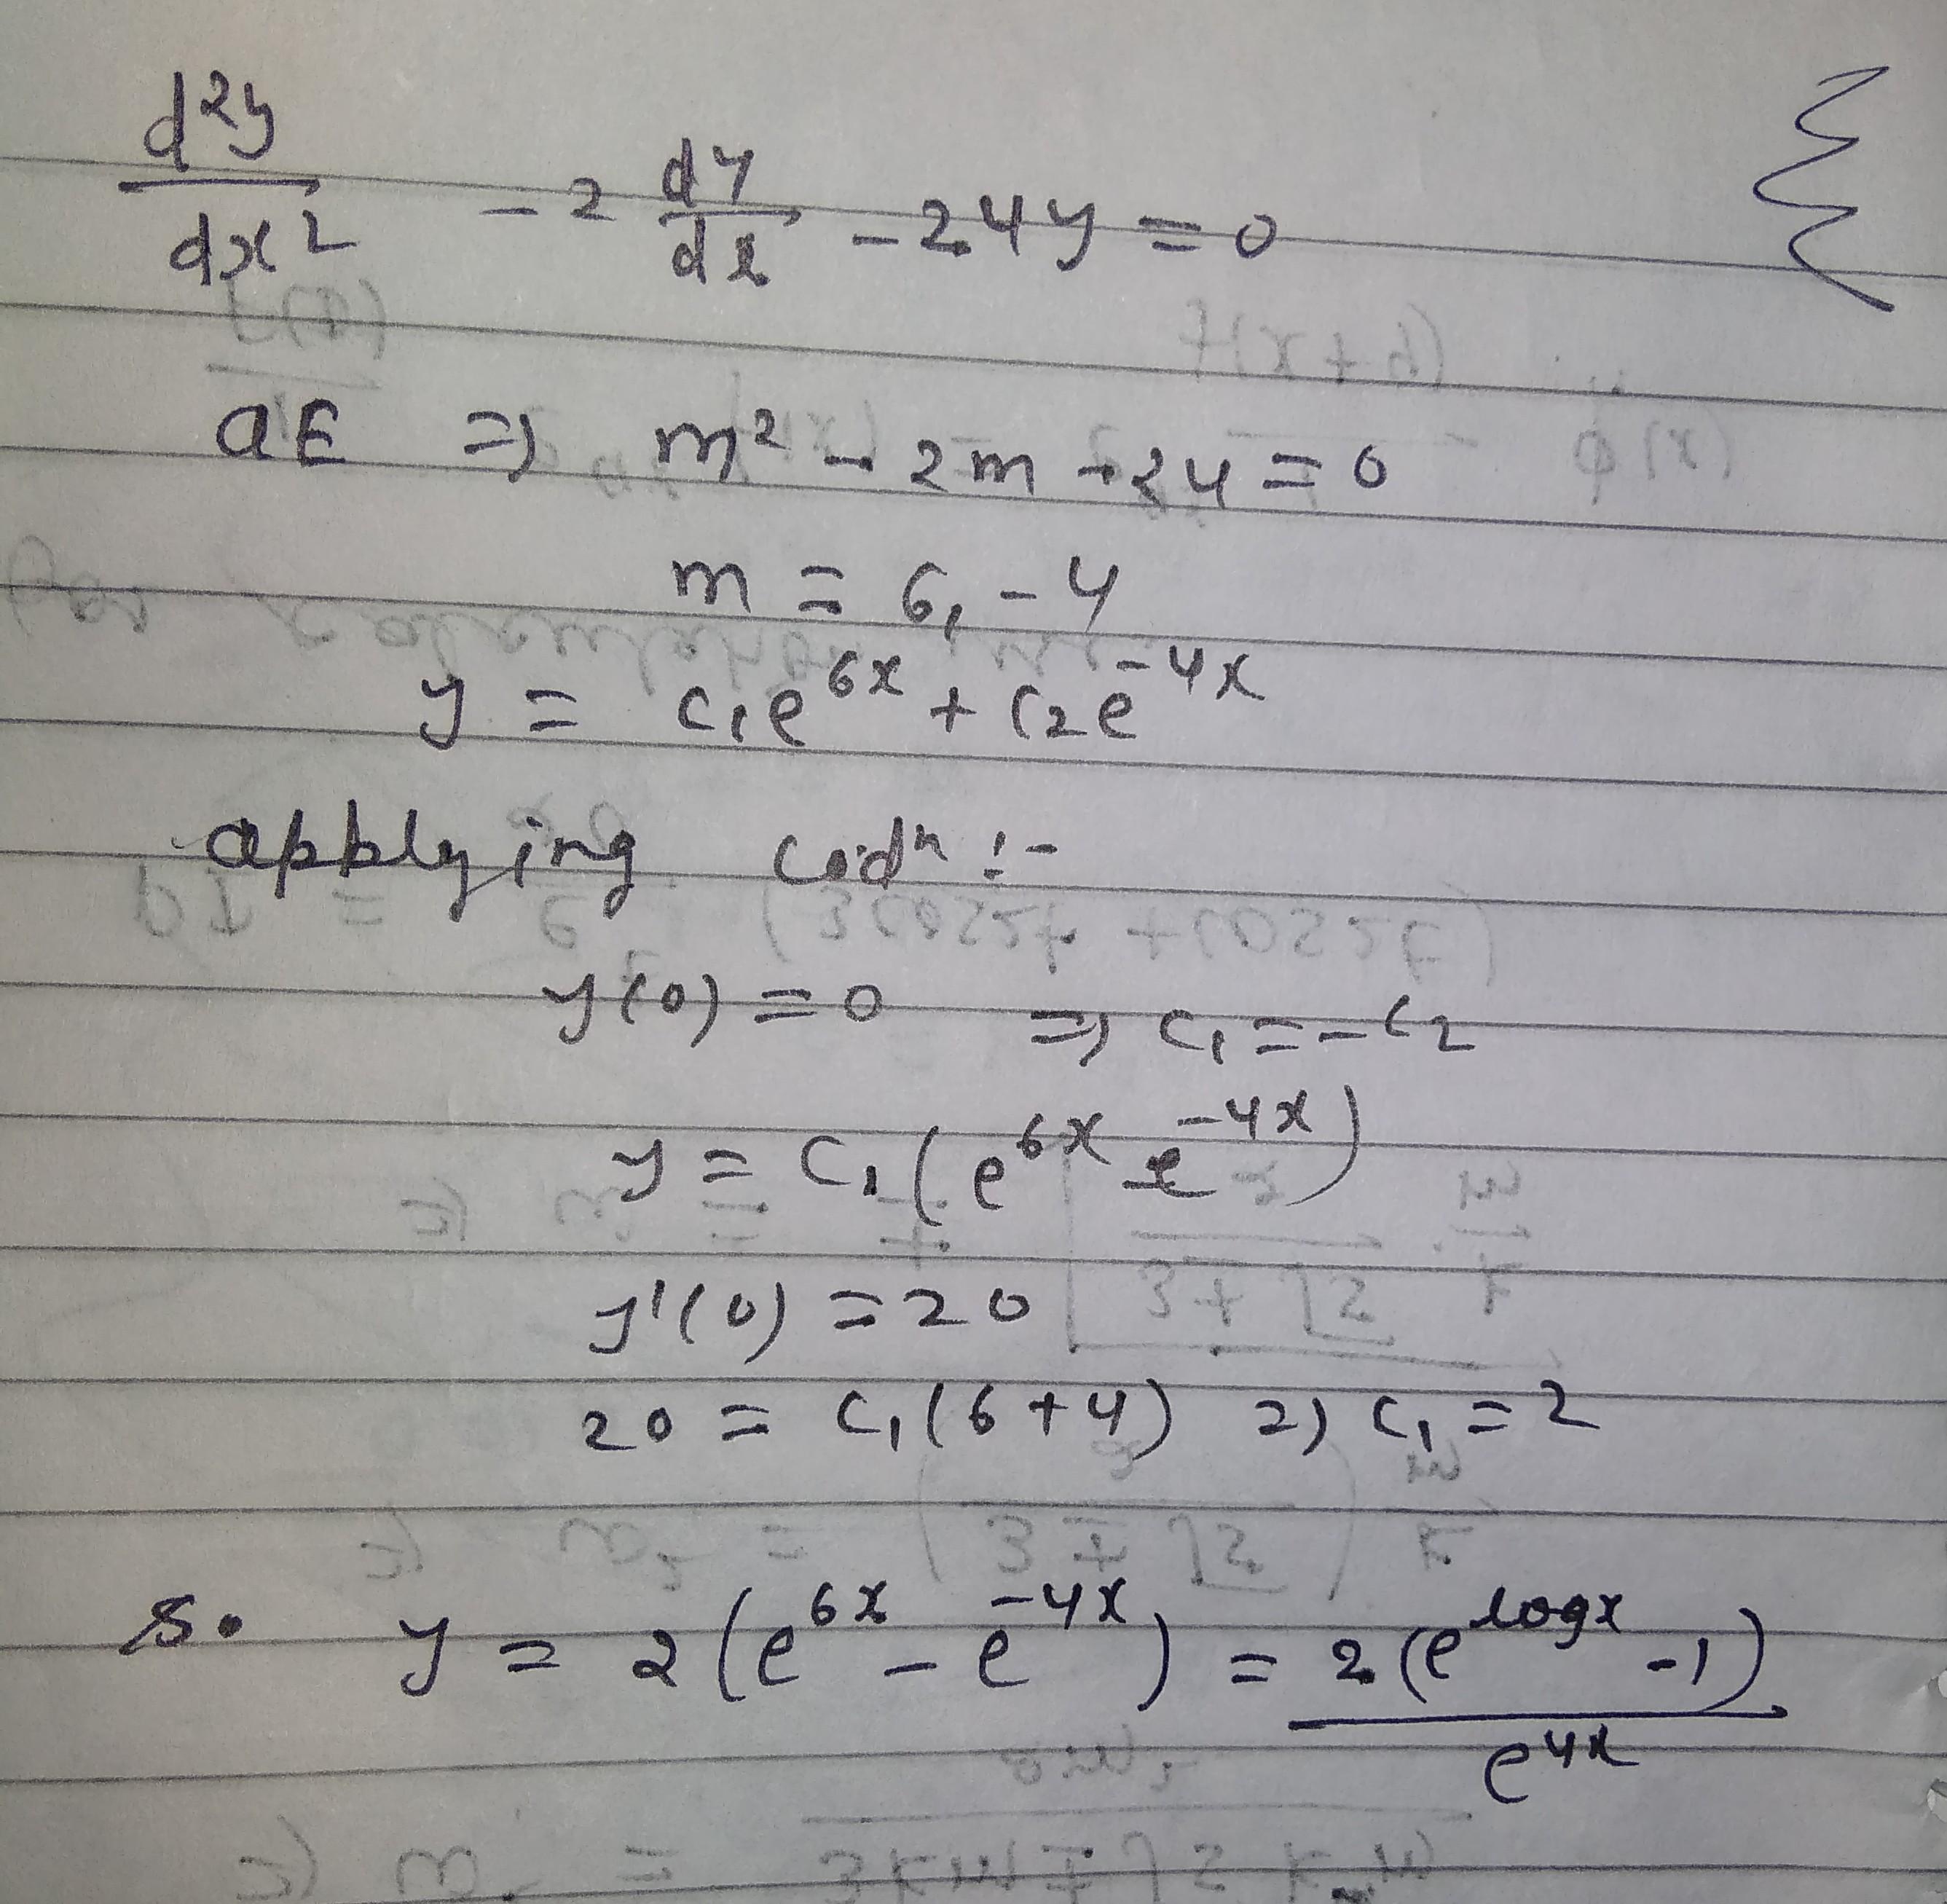 d²y/dx² - 2 dy/dx - 24y = 0
aE ⇒ m² - 2m - 24 = 0
m = 6, -4
y = c₁e^6x + c₂e^-4x
applying codn :-
y(0) = 0 ⇒ c₁ = -c₂
y = c₁(e^6x - e^-4x)
y'(0) = 20
20 = c₁(6+4) ⇒ c₁ = 2
So y = 2(e^6x - e^-4x) = 2(e^logx - 1)/e^4x